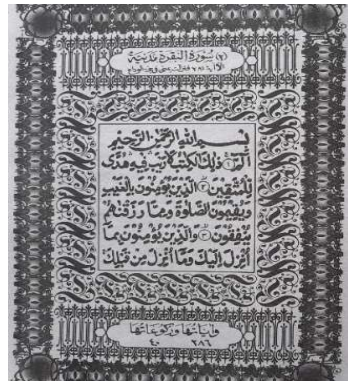 (٢) سورة البقرة مدنية
بسم الله الرحمن الرحيم
الم ذلك الكتب لا ريب فيه هدى
للمتقين ٢ الذين يؤمنون بالغيب
ويقيمون الصلوة ومما رزقنهم
ينفقون ٣ والذين يؤمنون بما
أنزل إليك وما أنزل من قبلك
وآياتها وركوعاتها
٢٨٦ ٤٠